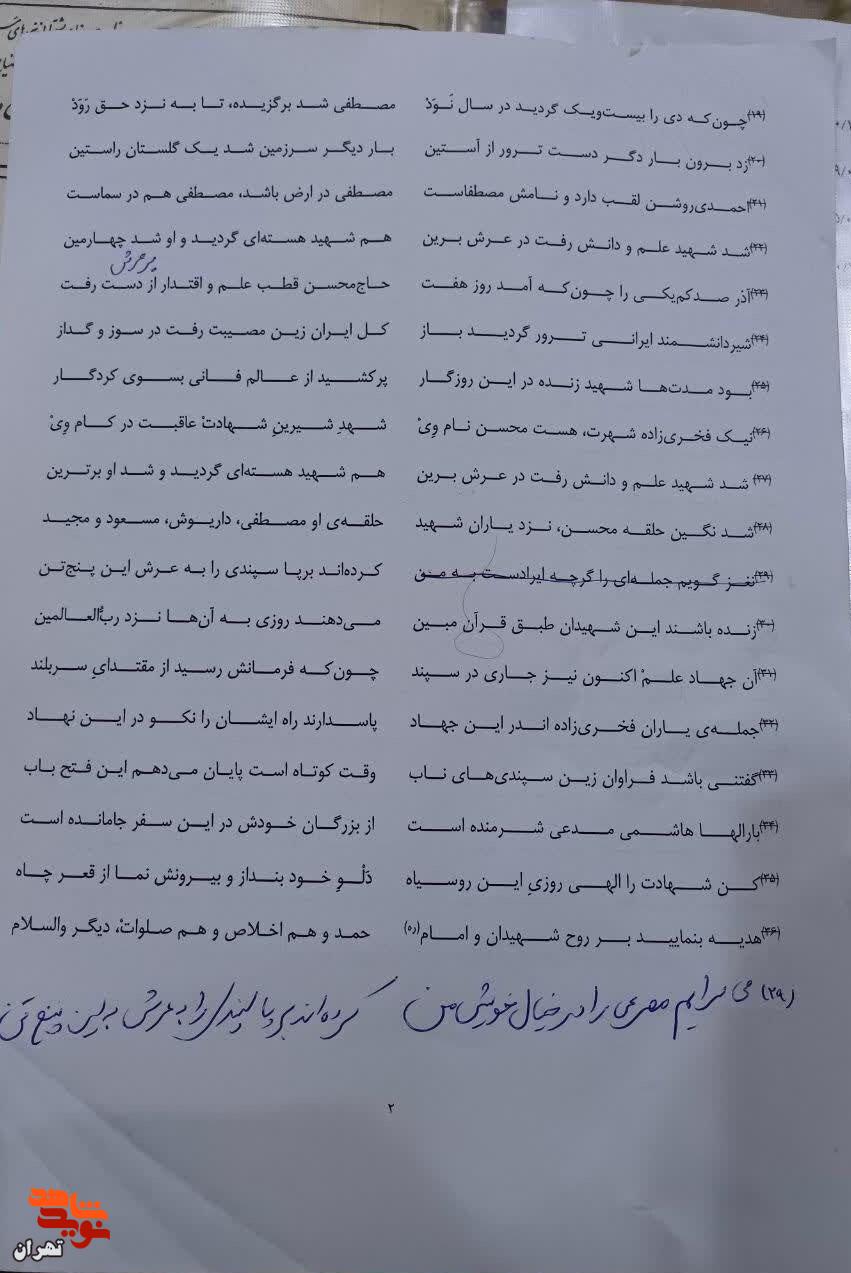 (۱۹) چون‌که دی را بیست‌ویک گردید در سال نَوَدْ مصطفی شد برگزیده، تا به نزد حق رَوَدْ
(۲۰) زد برون بار دگر دست ترور از آستین بار دیگر سرزمین شد یک گلستان راستین
(۲۱) احمدی‌روشن لقب دارد و نامش مصطفاست مصطفی در ارض باشد، مصطفی هم در سماست
(۲۲) شد شهید علم و دانش رفت در عرش برین هم شهید هسته‌ای گردید و او شد چهارمین
بر عرش
(۲۳) آذر صدکم‌یکی را چون‌که آمد روز هفت حاج‌محسن قطب علم و اقتدار از دست رفت
(۲۴) شیردانشمند ایرانی ترور گردید باز کل ایران زین مصیبت رفت در سوز و گداز
(۲۵) بود مدت‌ها شهید زنده در این روزگار پرکشید از عالم فانی بسوی کردگار
(۲۶) نیک فخری‌زاده شهرت، هست محسن نام وِیْ شهدِ شیرینِ شهادتْ عاقبت در کام وِیْ
(۲۷) شد شهید علم و دانش رفت در عرش برین هم شهید هسته‌ای گردید و شد او برترین
(۲۸) شد نگین حلقه محسن، نزد یاران شهید حلقه‌ی او مصطفی، داریوش، مسعود و مجید
(۲۹) نغز گویم جمله‌ای را گرچه ایرادست به من کرده‌اند برپا سپندی را به عرش این پنج‌تن
(۳۰) زنده باشند این شهیدان طبق قرآن مبین می‌دهند روزی به آن‌ها نزد ربُّ‌العالمین
(۳۱) آن جهاد علمْ اکنون نیز جاری در سپند چون‌که فرمانش رسید از مقتدایِ سربلند
(۳۲) جمله‌ی یاران فخری‌زاده اندر این جهاد پاسدارند راه ایشان را نکو در این نهاد
(۳۳) گفتنی باشد فراوان زین سپندی‌های ناب وقت کوتاه است پایان می‌دهم این فتح باب
(۳۴) بارالها هاشمی مدعی شرمنده است از بزرگان خودش در این سفر جامانده است
(۳۵) کن شهادت را الهی روزیِ این روسیاه دَلْوِ خود بنداز و بیرونش نما از قعر چاه
(۳۶) هدیه بنمایید بر روح شهیدان و امام(ره) حمد و هم اخلاص و هم صلواتْ، دیگر والسلام
(۲۹) می سرایم مصرعی را در خیال خویش من کرده‌اند برپا سپندی را به عرش این پنج تن
۲
نوید شاهد
تهران